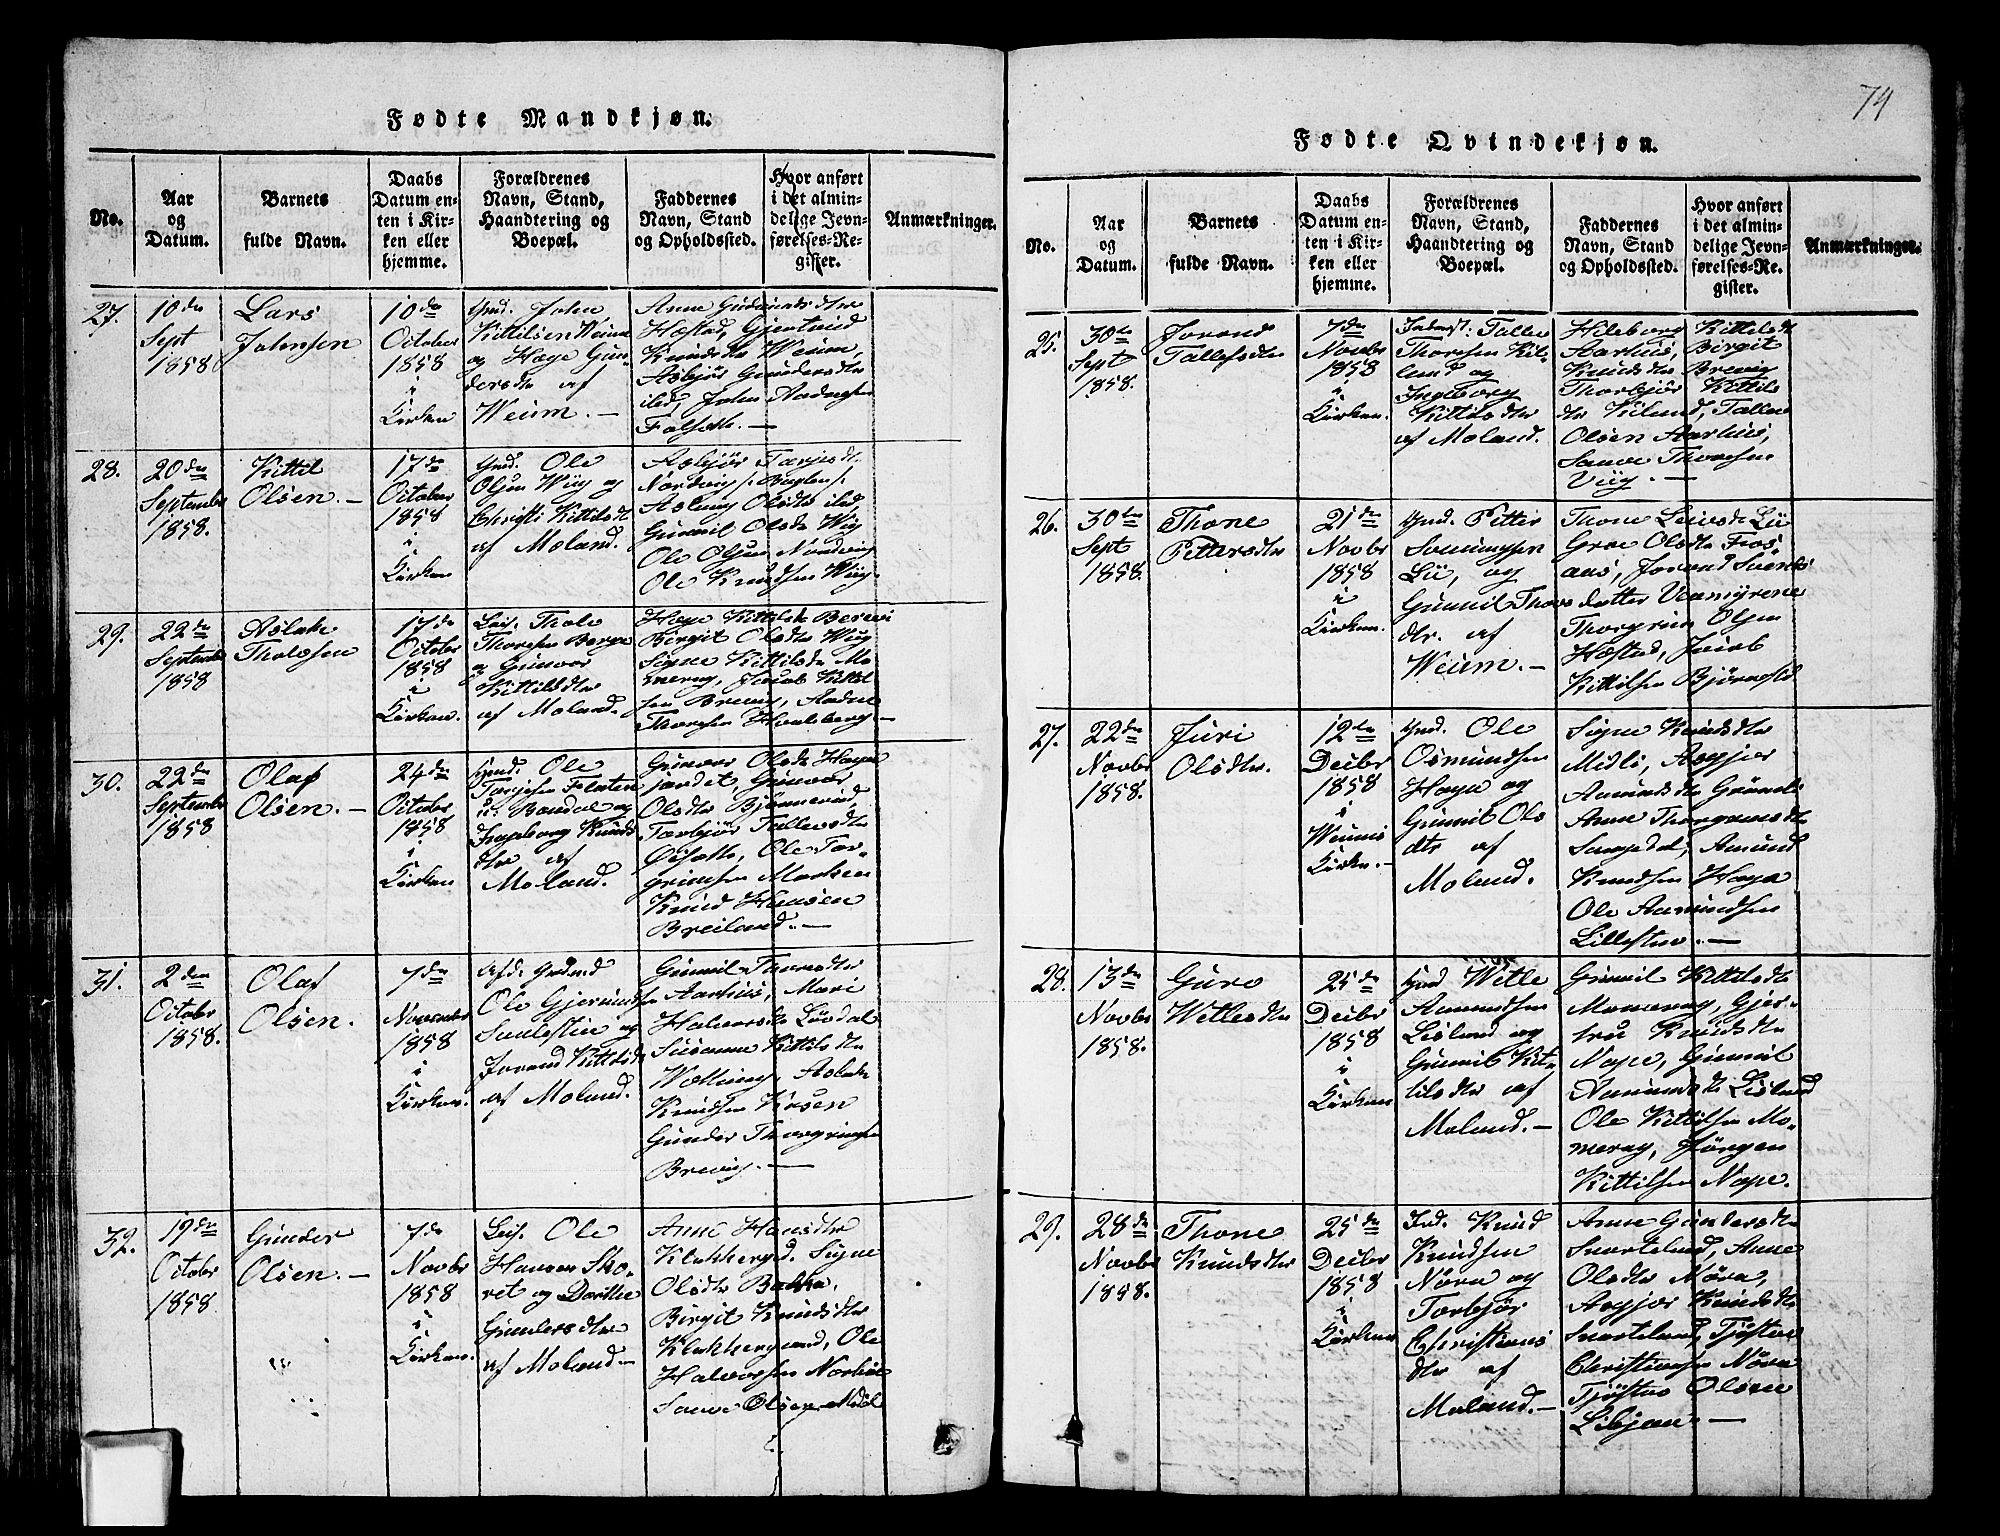 74
Fødte Mandkjøn.
No.
Aar
og
Datum.
Barnets
fulde Navn.
Daabs
Datum en-
ten i Kir-
ken eller
hjemme.
Forældrenes
Navn, Stand,
Haandtering og
Boepæl.
Faddernes
Navn, Stand
og Opholdssted.
Hvor anført
i det almin-
delige Jevn-
førelses-Re-
gister.
Anmærkninger.
27.
10de
Sept
1858
Lars
Johnsen
10de
October
1858
i
Kirken
Gmd. John
Kittilsen Weum
og Hæge Gun-
dersdtr af
Weum. —
Anne Gudmundsdtr
Høstad, Gjertrud
Knudsdtr Weum,
Asbjør Gundersdtr
ibd, John Aadnesen
Falsæth. —
28.
20de
September
1858.
Kittil
Olsen. —
17de
October
1858
i
Kirken
Gmd. Ole
Olsen Wiig og
Christi Kittilsdtr
af Moland.
Asbjør Tarjesdtr
Nordvig
Aslaug Olsdtr ibd,
Gunnil Olsdtr Wiig
Ole Olsen Nordvig
Ole Knudsen Wiig.
29.
22de
September
1858
Aslak
Tholefsen
17de
October
1858
i
Kirken.
Leil. Thole
Thorsen Berge
og Gunvor
Kittilsdtr
af Moland.
Hæge Kittilsdtr
Birgit Olsdtr Wiig
Signe Kittilsdtr Mo-
merag, Jacob Kittel
sen Brevig, Aadne
Thorsen Haatveberg. —
30.
22de
September
1858
Olaf
Olsen. —
24de
October
1858
i
Kirken
Gmd. Ole
Tarjesen Flaten
i Bandal og
Ingeborg Knuds
dtr af
Moland.
Gunvor Olsdtr Høgn
jordet, Gunvor
Olsdtr Bjønnerud,
Torbjør Tallevsdtr
Øisæth, Ole Tor-
grimsen Morken
Knud Hansen
Breiland. —
31.
2den
October
1858.
Olaf
Olsen.
7de
November
1858
i
Kirken.
Afd. Gmd
Ole Gjermundsen
Sandestin og
Jorand Kittilsdtr
af Moland.
Gunnil Thorsdtr
Aarhus, Mari
Halvorsdtr Løvdal
Susanne Kittilsdtr
Wetting, Aslak
Knudsen
Gunder Thorgrimsen
Brevig. —
32.
19de
October
1858.
Gunder
Olsen. —
7de
Novbr
1858
i
Kirken.
Leil. Ole
Hansen Sko-
ret og Dorthe
Gundersdtr
af Moland —
Anne Hansdtr
Klokkergd. Signe
Olsdtr Bakka,
Birgit Knudsdtr
Klokkergaard, Ole
Halvorsen
Sauve Olsen Midtl
Fødte Qvindekjøn.
No.
Aar
og
Datum.
Barnets
fulde Navn.
Daabs
Datum en-
ten i Kir-
ken eller
hjemme.
Forældrenes
Navn, Stand,
Haandtering og
Boepæl.
Faddernes
Navn, Stand
og Opholdssted.
Hvor anført
i det almin-
delige Jevn-
førelses-Re-
gister.
Anmærkninger.
25.
30te
Sept
1858.
Jorand
Tallefsdtr
7de
Novbr
1858
i
Kirken.
Inderst. Tallev
Thorsen Kil-
land og
Ingeborg
Kittilsdtr
af Moland.
Hileborg Kittilsdtr
Aarhus, Birgit
Knudsdtr Brevig
Thorbjør Kittils
dtr Kiland, Tallev
Olsen Aarhus,
Sauve Thorsen
Viig. —
26.
30te
Sept
1858.
Thone
Pettersdtr
21de
Novbr
1858
i
Kirken.
Gmd. Petter
Sonningsen
Lii, og
Gunnil Thors
dtr. af
Weum. —
Thone Leivsdtr Lii
Groe Olsdtr Fros-
aas, Jorand Svends
datter Vammyrene
Thorgrim Olsen
Høstad, Jacob
Kittilsen Bjørnstd
27.
22de
Novbr
1858.
Juri
Olsdtr.
12te
Decbr
1858
i
Weums
Kirken. —
Gmd. Ole
Osmundsen
Høgn og
Gunnil Ols
dtr af
Moland.
Signe Knudsdtr
Midli, Asgjer
Aamundsdtr
Anne Thorgrimsdtr
Songedal, Amund
Knudsen Høgn
Ole Aamundsen
Lillestin. —
28.
13de
Novbr
1858.
Guro
Wetlesdtr
25de
Decbr
1858
i
Kirken
Gmd Wetle
Aamundsen
Lisland og
Gunnil Kit-
tilsdtr af
Moland. —
Gunnil Kittilsdtr
Momerag, Gjer-
tru Knudsdtr
Nape, Gunnil
Aamundsdtr Lisland
Ole Kittilsen Mo-
merag, Jørgen
Kittilsen Nape.
29.
28de
Novbr
1858.
Thone
Knudsdtr
25de
Decbr
1858
i
Kirken
Ind. Knud
Knudsen
Nøra og
Torbjør
Christiens
dtr af
Moland. —
Anne Gundersdtr
Snarteland, Anne
Olsdtr Nøra,
Asgjer Knudsdtr
Snarteland, Tjøstov
Christiansen Nøra
Tjøstov Olsen
Libjan. —